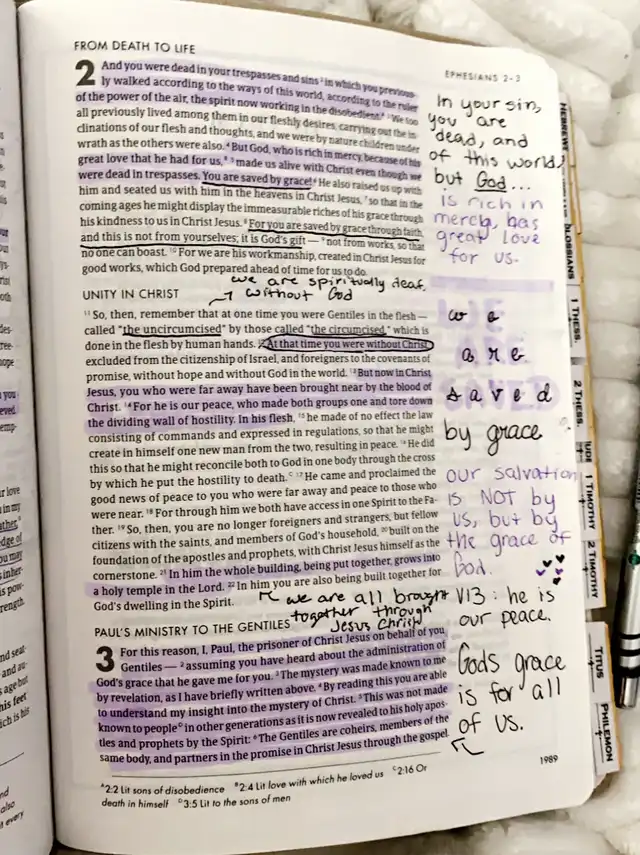 FROM DEATH TO LIFE
EPHESIANS 2–3
2 And you were dead in your trespasses and sins ² in which you previous-
ly walked according to the ways of this world, according to the ruler
of the power of the air, the spirit now working in the disobedient.ᴬ ³ We too
all previously lived among them in our fleshly desires, carrying out the in-
clinations of our flesh and thoughts, and we were by nature children under
wrath as the others were also. ⁴ But God, who is rich in mercy, because of his
great love that he had for us,ᴮ ⁵ made us alive with Christ even though we
were dead in trespasses. You are saved by grace! ⁶ He also raised us up with
him and seated us with him in the heavens in Christ Jesus, ⁷ so that in the
coming ages he might display the immeasurable riches of his grace through
his kindness to us in Christ Jesus. ⁸ For you are saved by grace through faith,
and this is not from yourselves; it is God's gift — ⁹ not from works, so that
no one can boast. ¹⁰ For we are his workmanship, created in Christ Jesus for
good works, which God prepared ahead of time for us to do.
we are spiritually deaf
without God
UNITY IN CHRIST
¹¹ So, then, remember that at one time you were Gentiles in the flesh —
called "the uncircumcised" by those called "the circumcised," which is
done in the flesh by human hands. ¹² At that time you were without Christ,
excluded from the citizenship of Israel, and foreigners to the covenants of
promise, without hope and without God in the world. ¹³ But now in Christ
Jesus, you who were far away have been brought near by the blood of
Christ. ¹⁴ For he is our peace, who made both groups one and tore down
the dividing wall of hostility. In his flesh, ¹⁵ he made of no effect the law
consisting of commands and expressed in regulations, so that he might
create in himself one new man from the two, resulting in peace. ¹⁶ He did
this so that he might reconcile both to God in one body through the cross
by which he put the hostility to death.ᶜ ¹⁷ He came and proclaimed the
good news of peace to you who were far away and peace to those who
were near. ¹⁸ For through him we both have access in one Spirit to the Fa-
ther. ¹⁹ So, then, you are no longer foreigners and strangers, but fellow
citizens with the saints, and members of God's household, ²⁰ built on the
foundation of the apostles and prophets, with Christ Jesus himself as the
cornerstone. ²¹ In him the whole building, being put together, grows into
a holy temple in the Lord. ²² In him you are also being built together for
God's dwelling in the Spirit.
we are all brought
together through
Jesus Christ
PAUL'S MINISTRY TO THE GENTILES
3 For this reason, I, Paul, the prisoner of Christ Jesus on behalf of you
Gentiles — ² assuming you have heard about the administration of
God's grace that he gave me for you. ³ The mystery was made known to me
by revelation, as I have briefly written above. ⁴ By reading this you are able
to understand my insight into the mystery of Christ. ⁵ This was not made
known to peopleᴰ in other generations as it is now revealed to his holy apos-
tles and prophets by the Spirit: ⁶ The Gentiles are coheirs, members of the
same body, and partners in the promise in Christ Jesus through the gospel.
ᴬ2:2 Lit sons of disobedience ᴮ2:4 Lit love with which he loved us ᶜ2:16 Or
death in himself ᴰ3:5 Lit to the sons of men
1989
In your sin,
you are
dead, and
of this world,
but God...
is rich in
mercy, has
great love
for us.
WE
ARE
SAVED
we
are
saved
by grace
our salvation
is NOT by
us, but by
the grace of
God.
V13: he is
our peace.
Gods grace
is for all
of us.
HEBREWS
COLOSSIANS
1 THESS.
2 THESS.
1 TIMOTHY
2 TIMOTHY
TITUS
PHILEMON